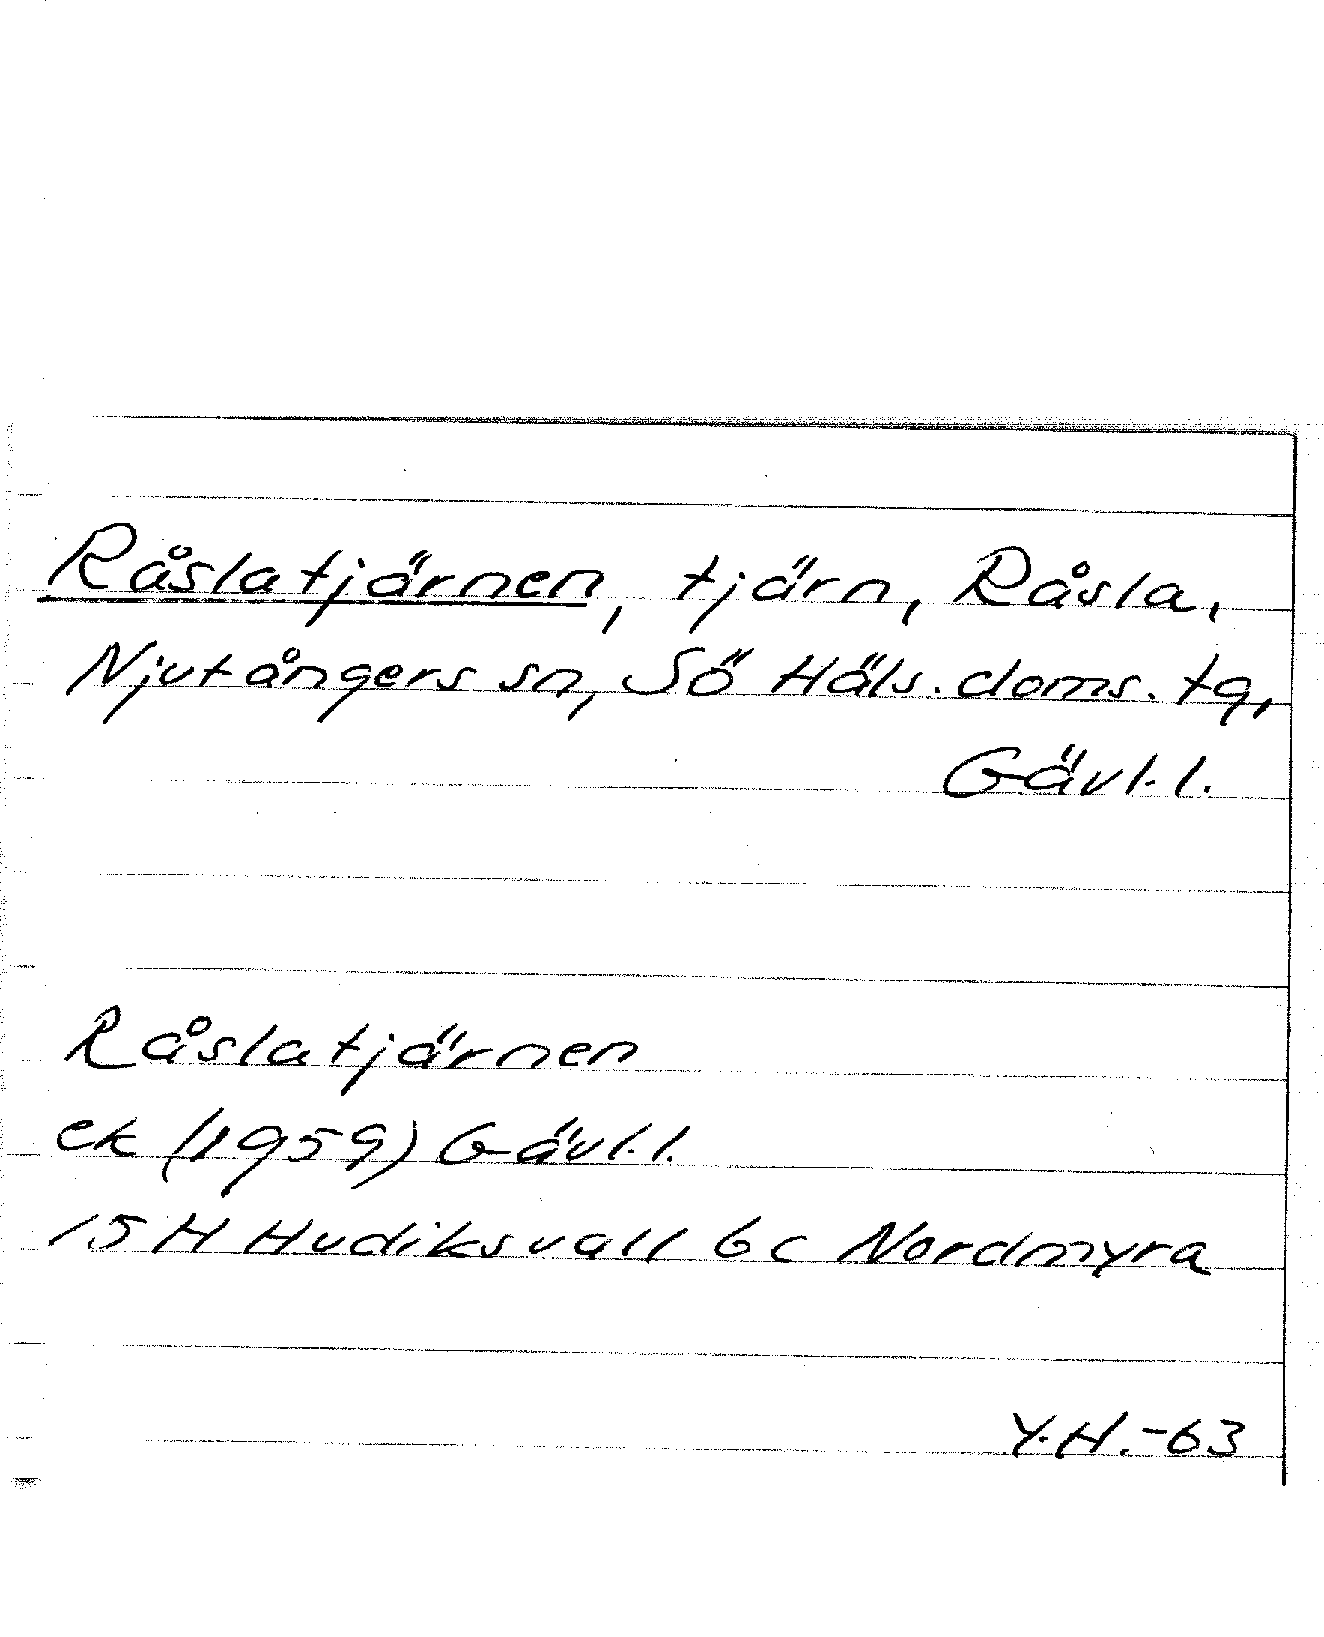 Råslatjärnen, tjärn, Råsla,
Njutångers sn, Sö Häls. doms. tg,
Gävl. l.
Råslatjärnen
ek (1959) Gävl. l.
15 H Hudiksvall 6c Nordmyra
Y.H.-63